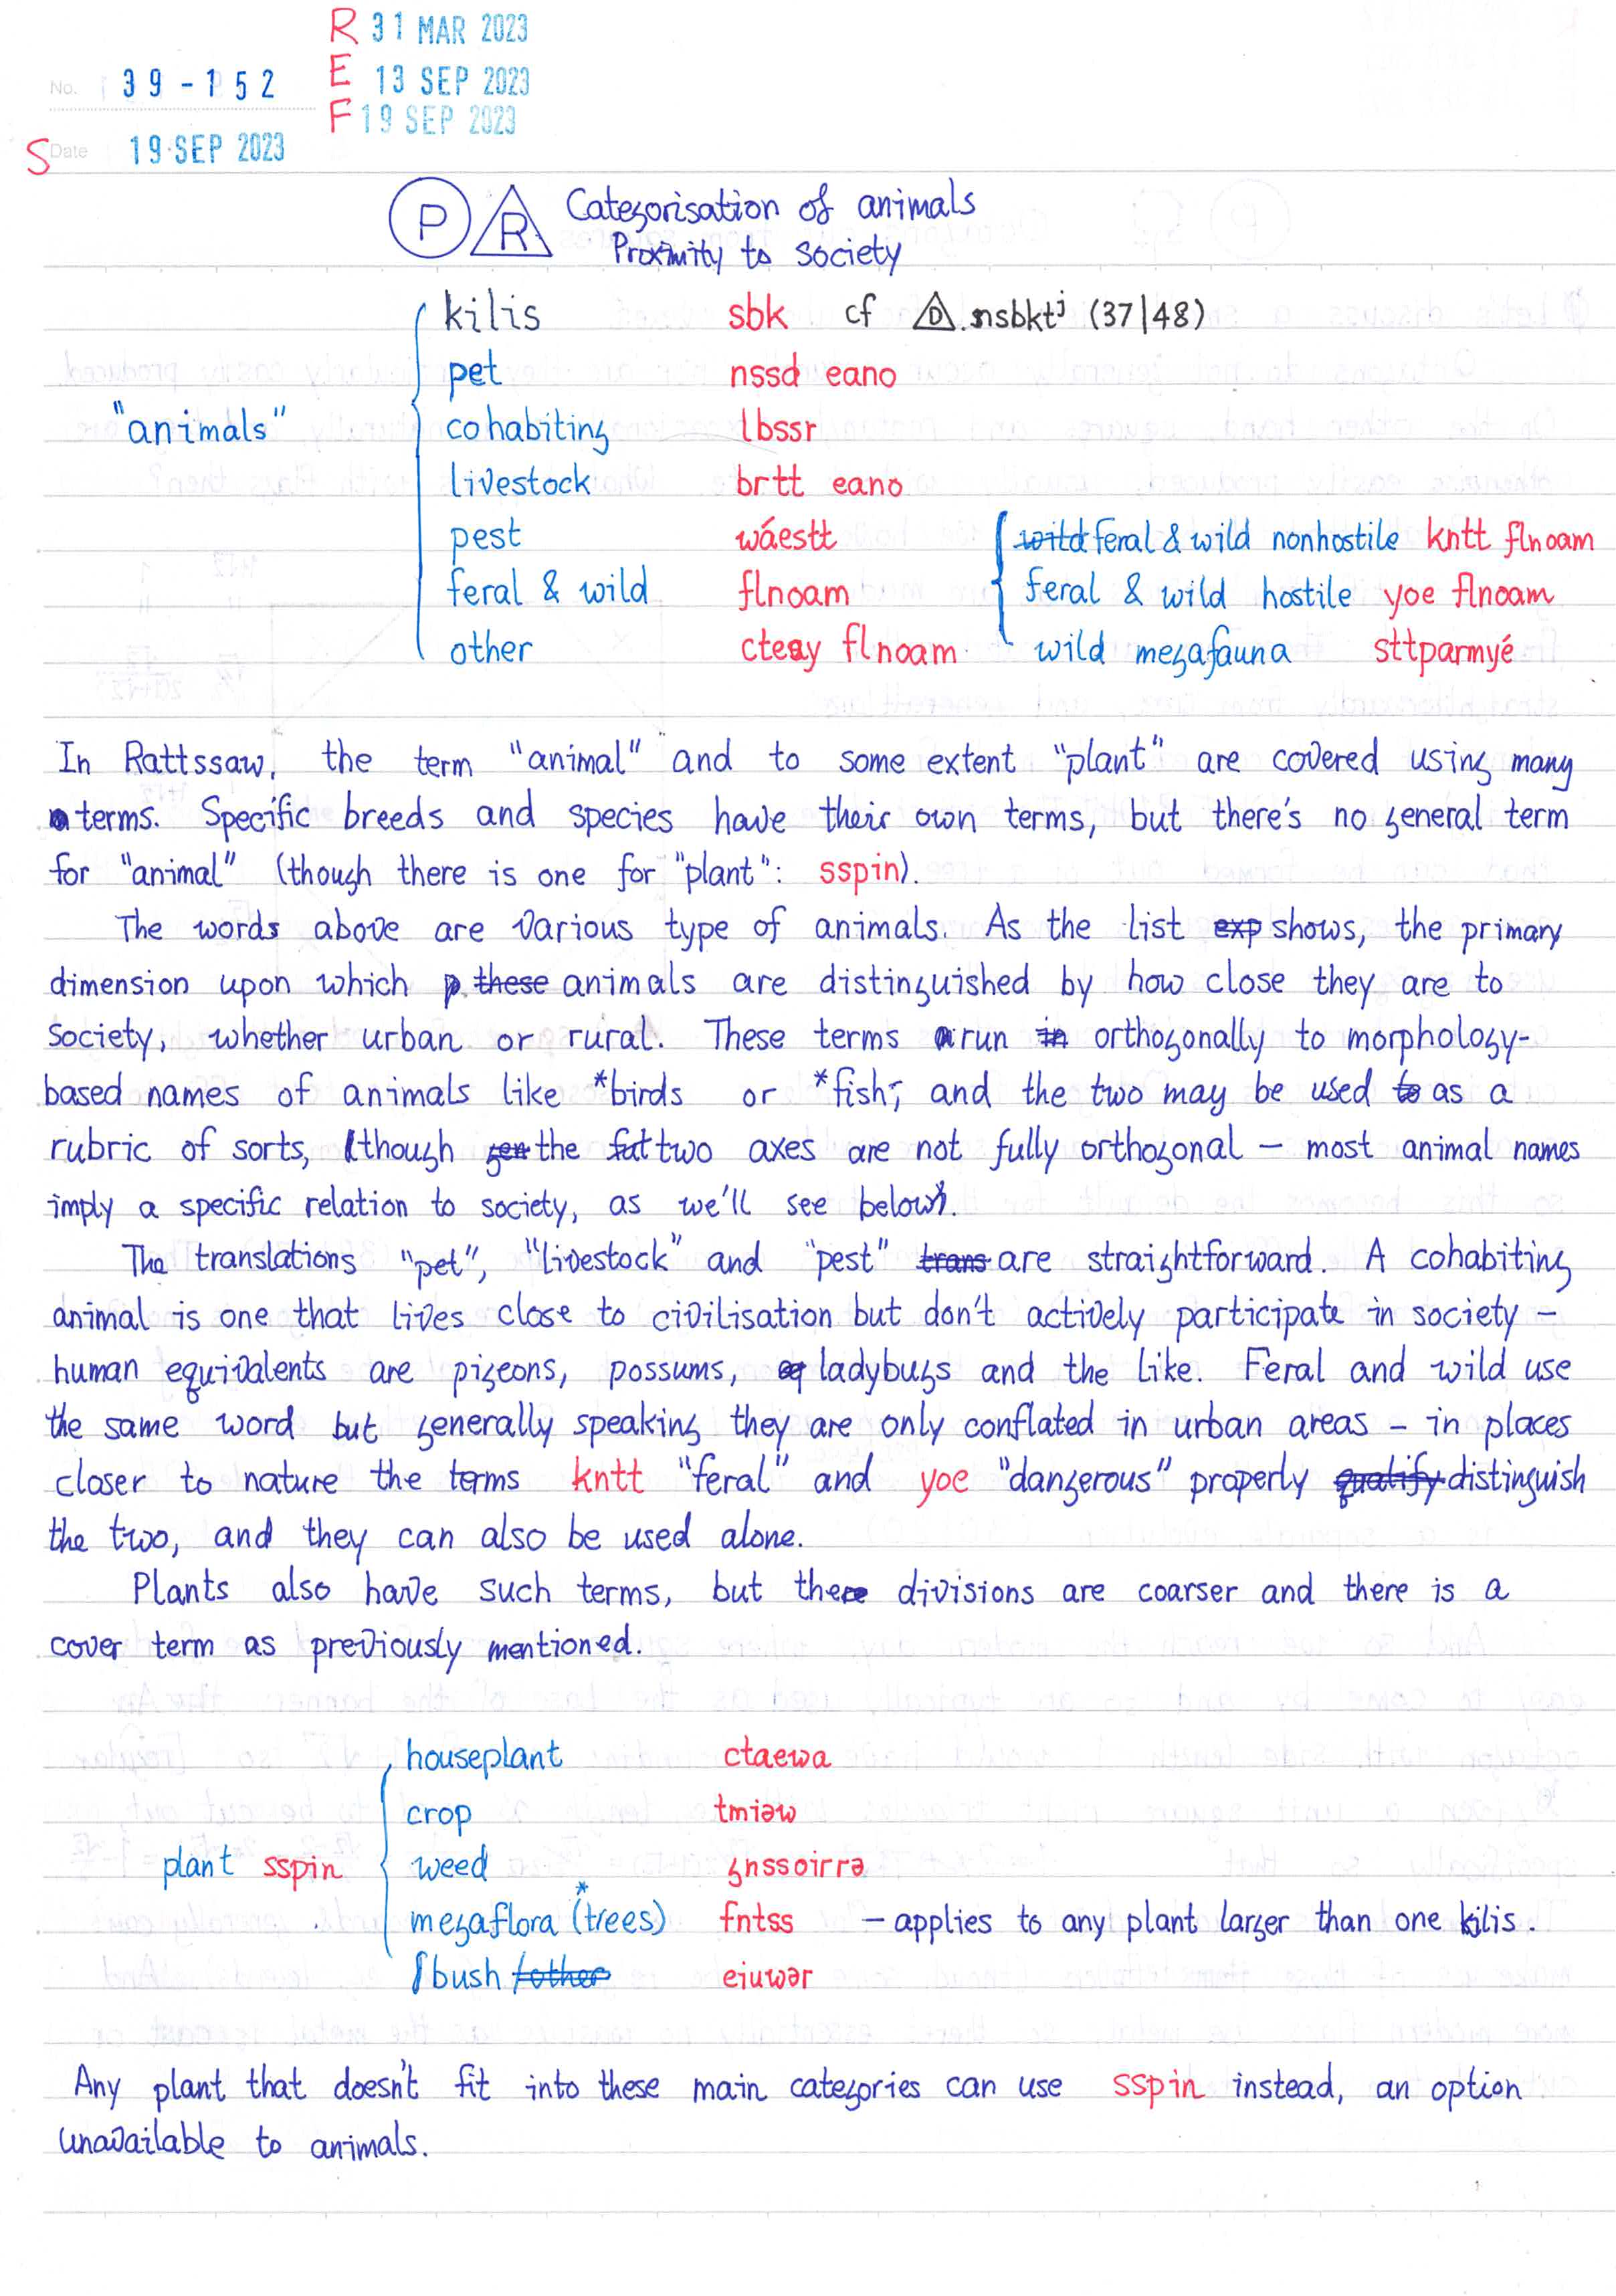 R 31 MAR 2023
No. 39-152 E 13 SEP 2023
F 19 SEP 2023
S Date 19 SEP 2023
P R Categorisation of animals
Proximity to society
kilis sbk cf D nsbktʲ (37|48)
pet nssd eano
"animals" cohabiting lbssr
livestock brtt eano
pest wáestt wild feral & wild nonhostile kntt flnoam
feral & wild flnoam feral & wild hostile yoe flnoam
other cteay flnoam wild megafauna sttparmyé
In Rattssaw, the term "animal" and to some extent "plant" are covered using many
terms. Specific breeds and species have their own terms, but there's no general term
for "animal" (though there is one for "plant": sspin).
The words above are various type of animals. As the list exp shows, the primary
dimension upon which p these animals are distinguished by how close they are to
society, whether urban or rural. These terms run in orthogonally to morphology-
based names of animals like *birds or *fish, and the two may be used to as a
rubric of sorts, though gen the fat two axes are not fully orthogonal – most animal names
imply a specific relation to society, as we'll see below.
The translations "pet", "livestock" and "pest" trans are straightforward. A cohabiting
animal is one that lives close to civilisation but don't actively participate in society –
human equivalents are pigeons, possums, eq ladybugs and the like. Feral and wild use
the same word but generally speaking they are only conflated in urban areas – in places
closer to nature the terms kntt "feral" and yoe "dangerous" properly qualify distinguish
the two, and they can also be used alone.
Plants also have such terms, but there divisions are coarser and there is a
cover term as previously mentioned.
houseplant ctaewa
crop tmiəw
plant sspin weed gnssoirrə
megaflora (*trees) fntss – applies to any plant larger than one kilis.
bush /other eiuwər
Any plant that doesn't fit into these main categories can use sspin instead, an option
unavailable to animals.